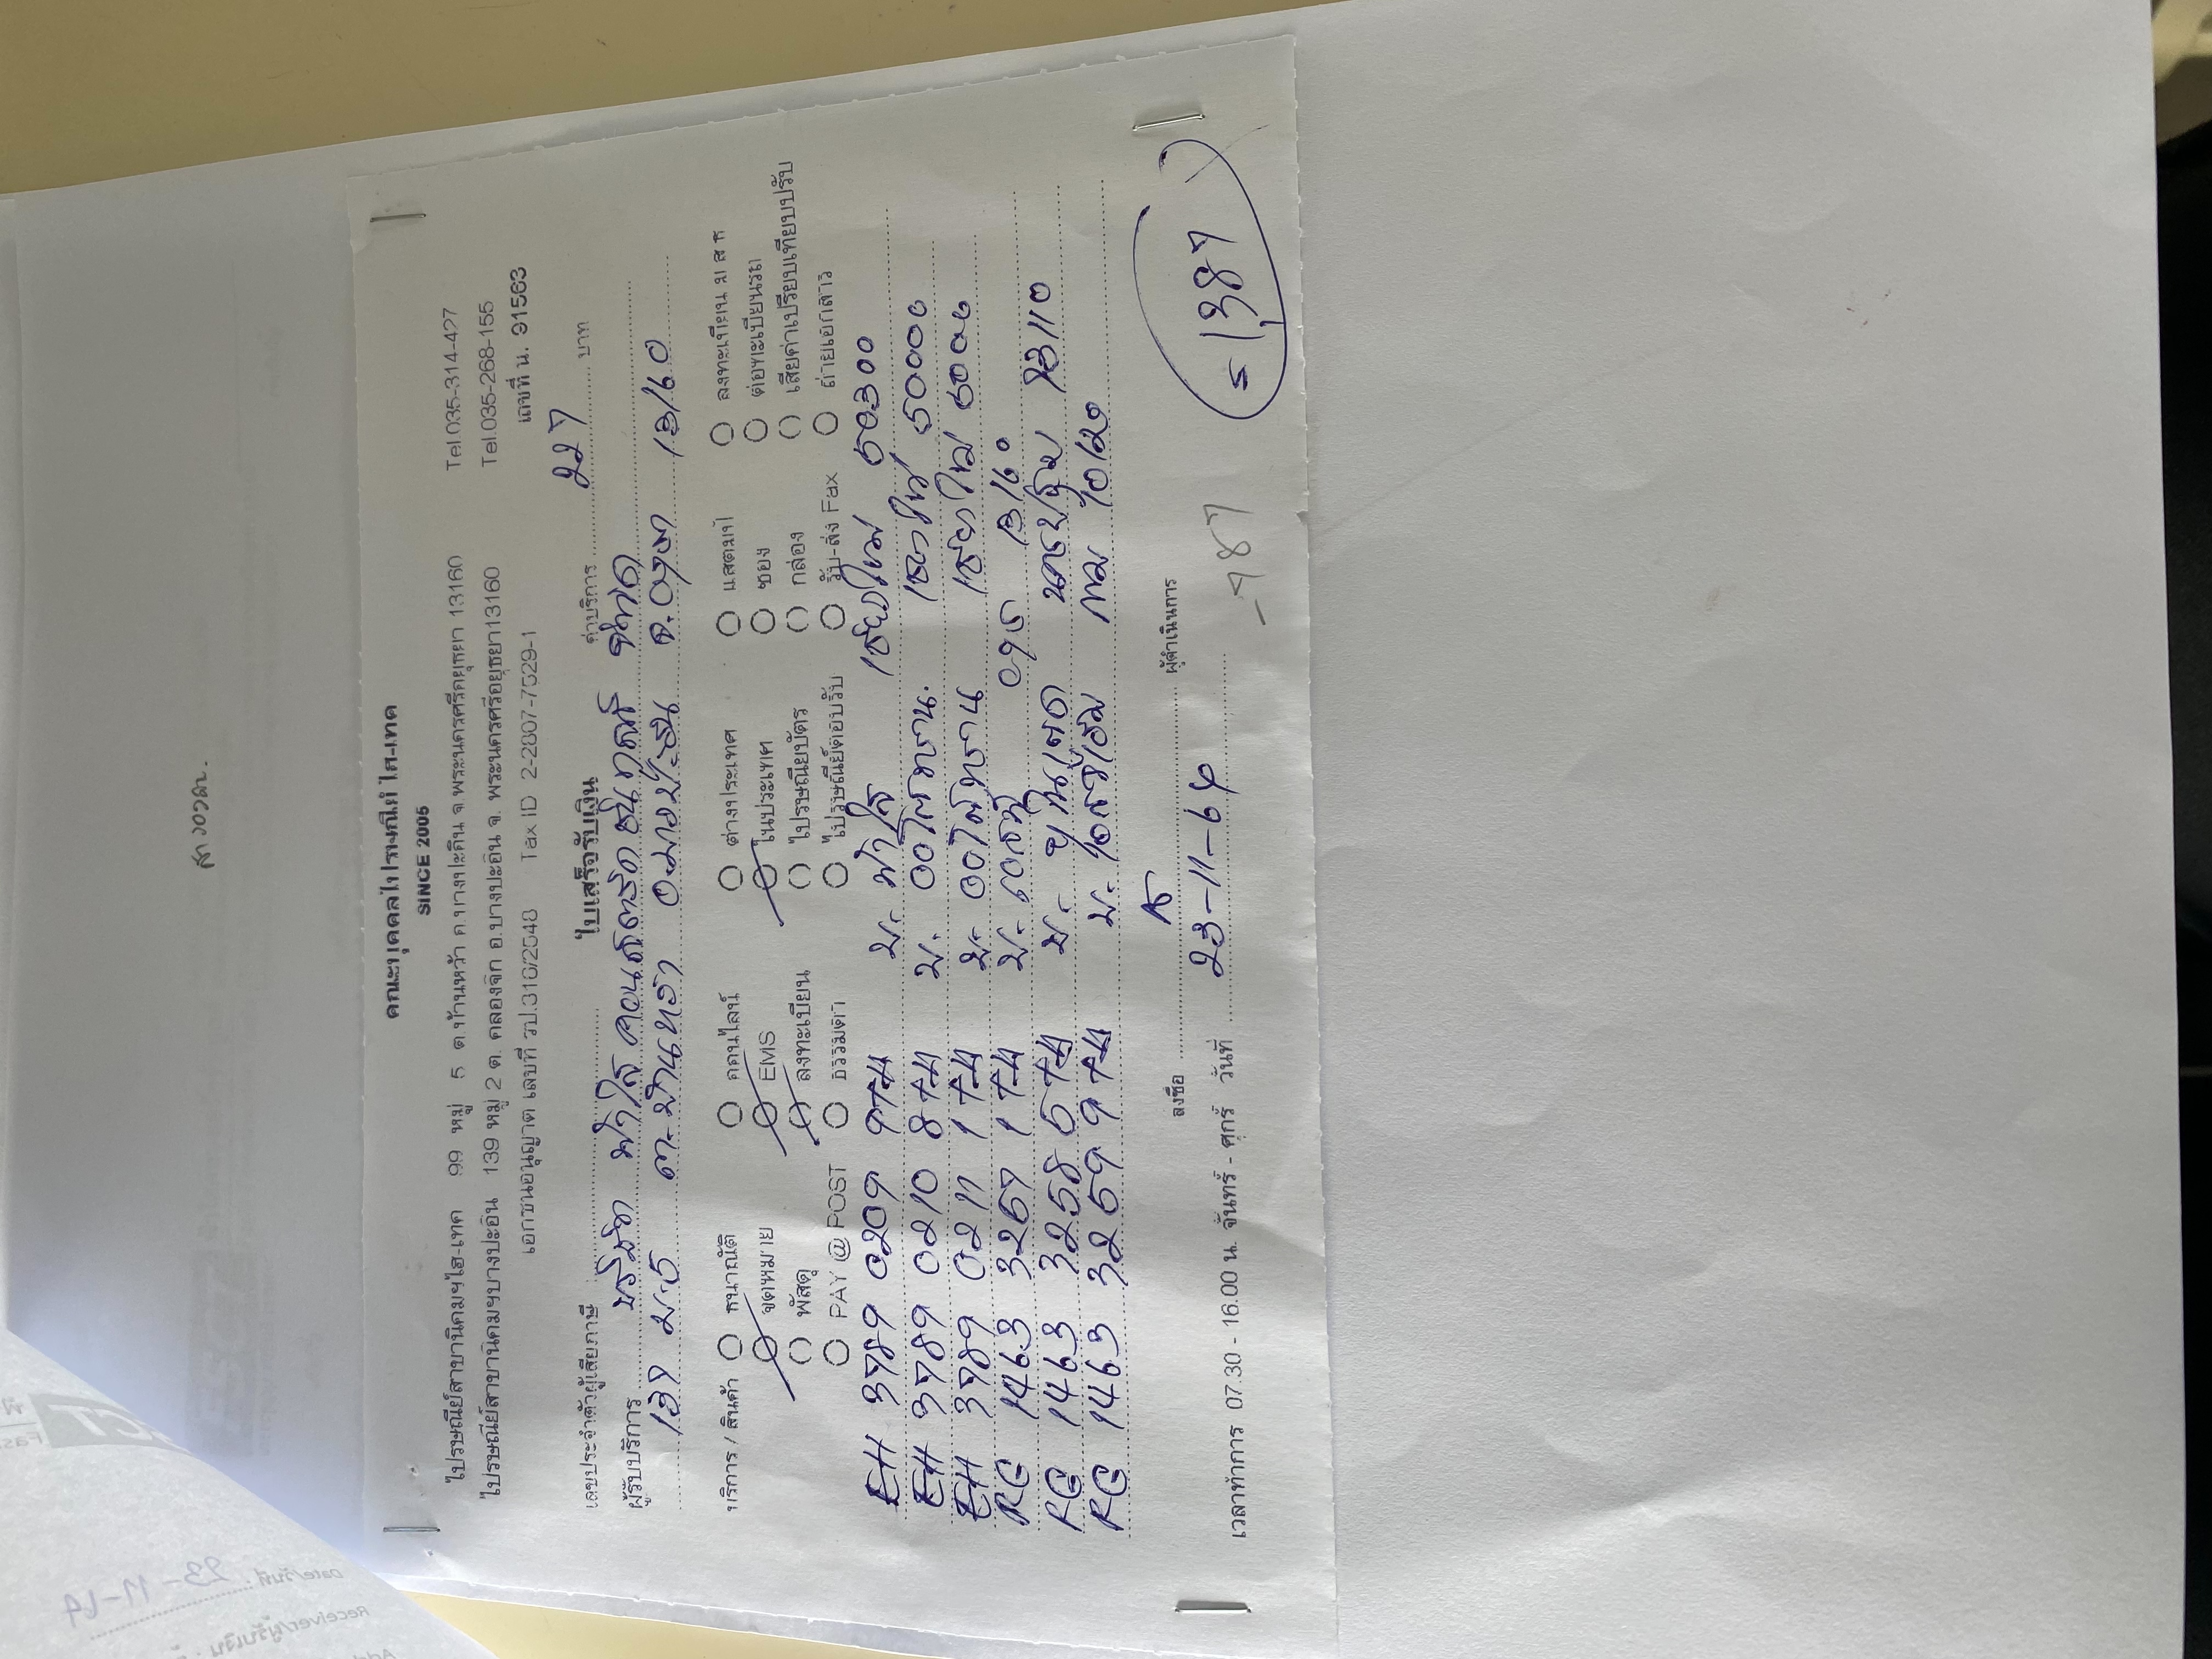 คณะบุคคลไปรษณีย์ ไฮ-เทค
SINCE 2005
ไปรษณีย์สาขานิคมฯไฮ-เทค 99 หมู่ 5 ต.บ้านหว้า อ.บางปะอิน จ.พระนครศรีอยุธยา 13160 Tel.035-314-427
ไปรษณีย์สาขานิคมฯบางปะอิน 139 หมู่ 2 ต. คลองจิก อ.บางปะอิน จ. พระนครศรีอยุธยา13160 Tel.035-268-155
เอกชนอนุญาต เลขที่ รป.316/2548 Tax ID 2-2807-7529-1 เลขที่ น. 91563
เลขประจำตัวผู้เสียภาษี ใบเสร็จรับเงิน ค่าบริการ 227 บาท
ผู้รับบริการ บริษัท ฟ้าใส คอนสตรัค จำกัด
137 ม.5 ต.บ้านหว้า อ.บางปะอิน จ.อยุธยา 13160
บริการ / สินค้า ธนาณัติ ออนไลน์ ต่างประเทศ แสตมป์ ลงทะเบียน ม ส ธ
จดหมาย EMS ในประเทศ ซอง ต่อทะเบียนรถ
พัสดุ ลงทะเบียน ไปรษณียบัตร กล่อง เสียค่าเปรียบเทียบปรับ
PAY @ POST ธรรมดา ไปรษณีย์ตอบรับ รับ-ส่ง Fax ถ่ายเอกสาร
EH 3789 0209 9TH บ. ฟ้าใส เชียงใหม่ 50300
EH 3789 0210 8TH บ. เชียงใหม่ 50000
EH 3789 0211 1TH บ. เชียงใหม่ 5000
RG 1463 3257 1TH บ. อยุธยา 13160
RG 1463 3258 5TH บ. ยูไนเตด นครปฐม 73110
RG 1463 3259 9TH บ. กทม 10120
ลงชื่อ ผู้ดำเนินการ
เวลาทำการ 07.30 - 16.00 น. จันทร์ - ศุกร์ วันที่ 23-11-64
-787
= 1,387